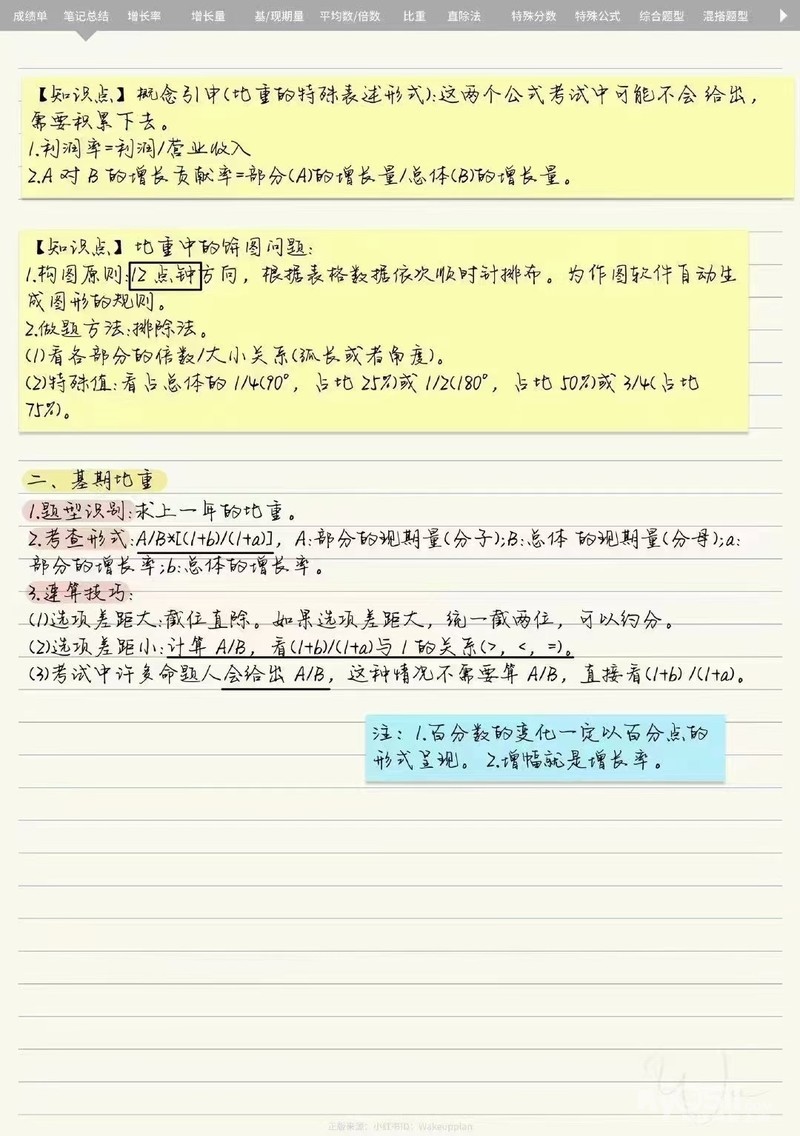 成绩单 笔记总结 增长率 增长量 基/现期量 平均数/倍数 比重 直除法 特殊分数 特殊公式 综合题型 混搭题型
【知识点】概念引申(比重的特殊表述形式):这两个公式考试中可能不会给出，
需要积累下去。
1.利润率=利润/营业收入
2.A 对 B 的增长贡献率=部分(A)的增长量/总体(B)的增长量。
【知识点】比重中的饼图问题:
1.构图原则:12 点钟方向，根据表格数据依次顺时针排布。为作图软件自动生
成图形的规则。
2.做题方法:排除法。
(1)看各部分的倍数/大小关系(弧长或者角度)。
(2)特殊值:看占总体的 1/4(90°，占比 25%)或 1/2(180°，占比 50%)或 3/4(占比
75%)。
二、基期比重
1.题型识别:求上一年的比重。
2.考查形式:A/B×[(1+b)/(1+a)]，A:部分的现期量(分子);B:总体 的现期量(分母);a:
部分的增长率;b:总体的增长率。
3.速算技巧:
(1)选项差距大:截位直除。如果选项差距大，统一截两位，可以约分。
(2)选项差距小:计算 A/B，看(1+b)/(1+a)与 1 的关系(>，<，=)。
(3)考试中许多命题人会给出 A/B，这种情况不需要算 A/B，直接看(1+b) /(1+a)。
注：1.百分数的变化一定以百分点的
形式呈现。2.增幅就是增长率。
正版来源：小红书ID：Wakeupplan